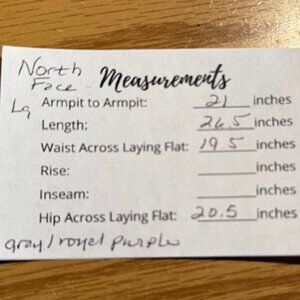 North
Face Measurements
Lg Armpit to Armpit: 21 inches
Length: 26.5 inches
Waist Across Laying Flat: 19 5 inches
Rise: ______ inches
Inseam: ______ inches
Hip Across Laying Flat: 20.5 inches
gray/royal purple